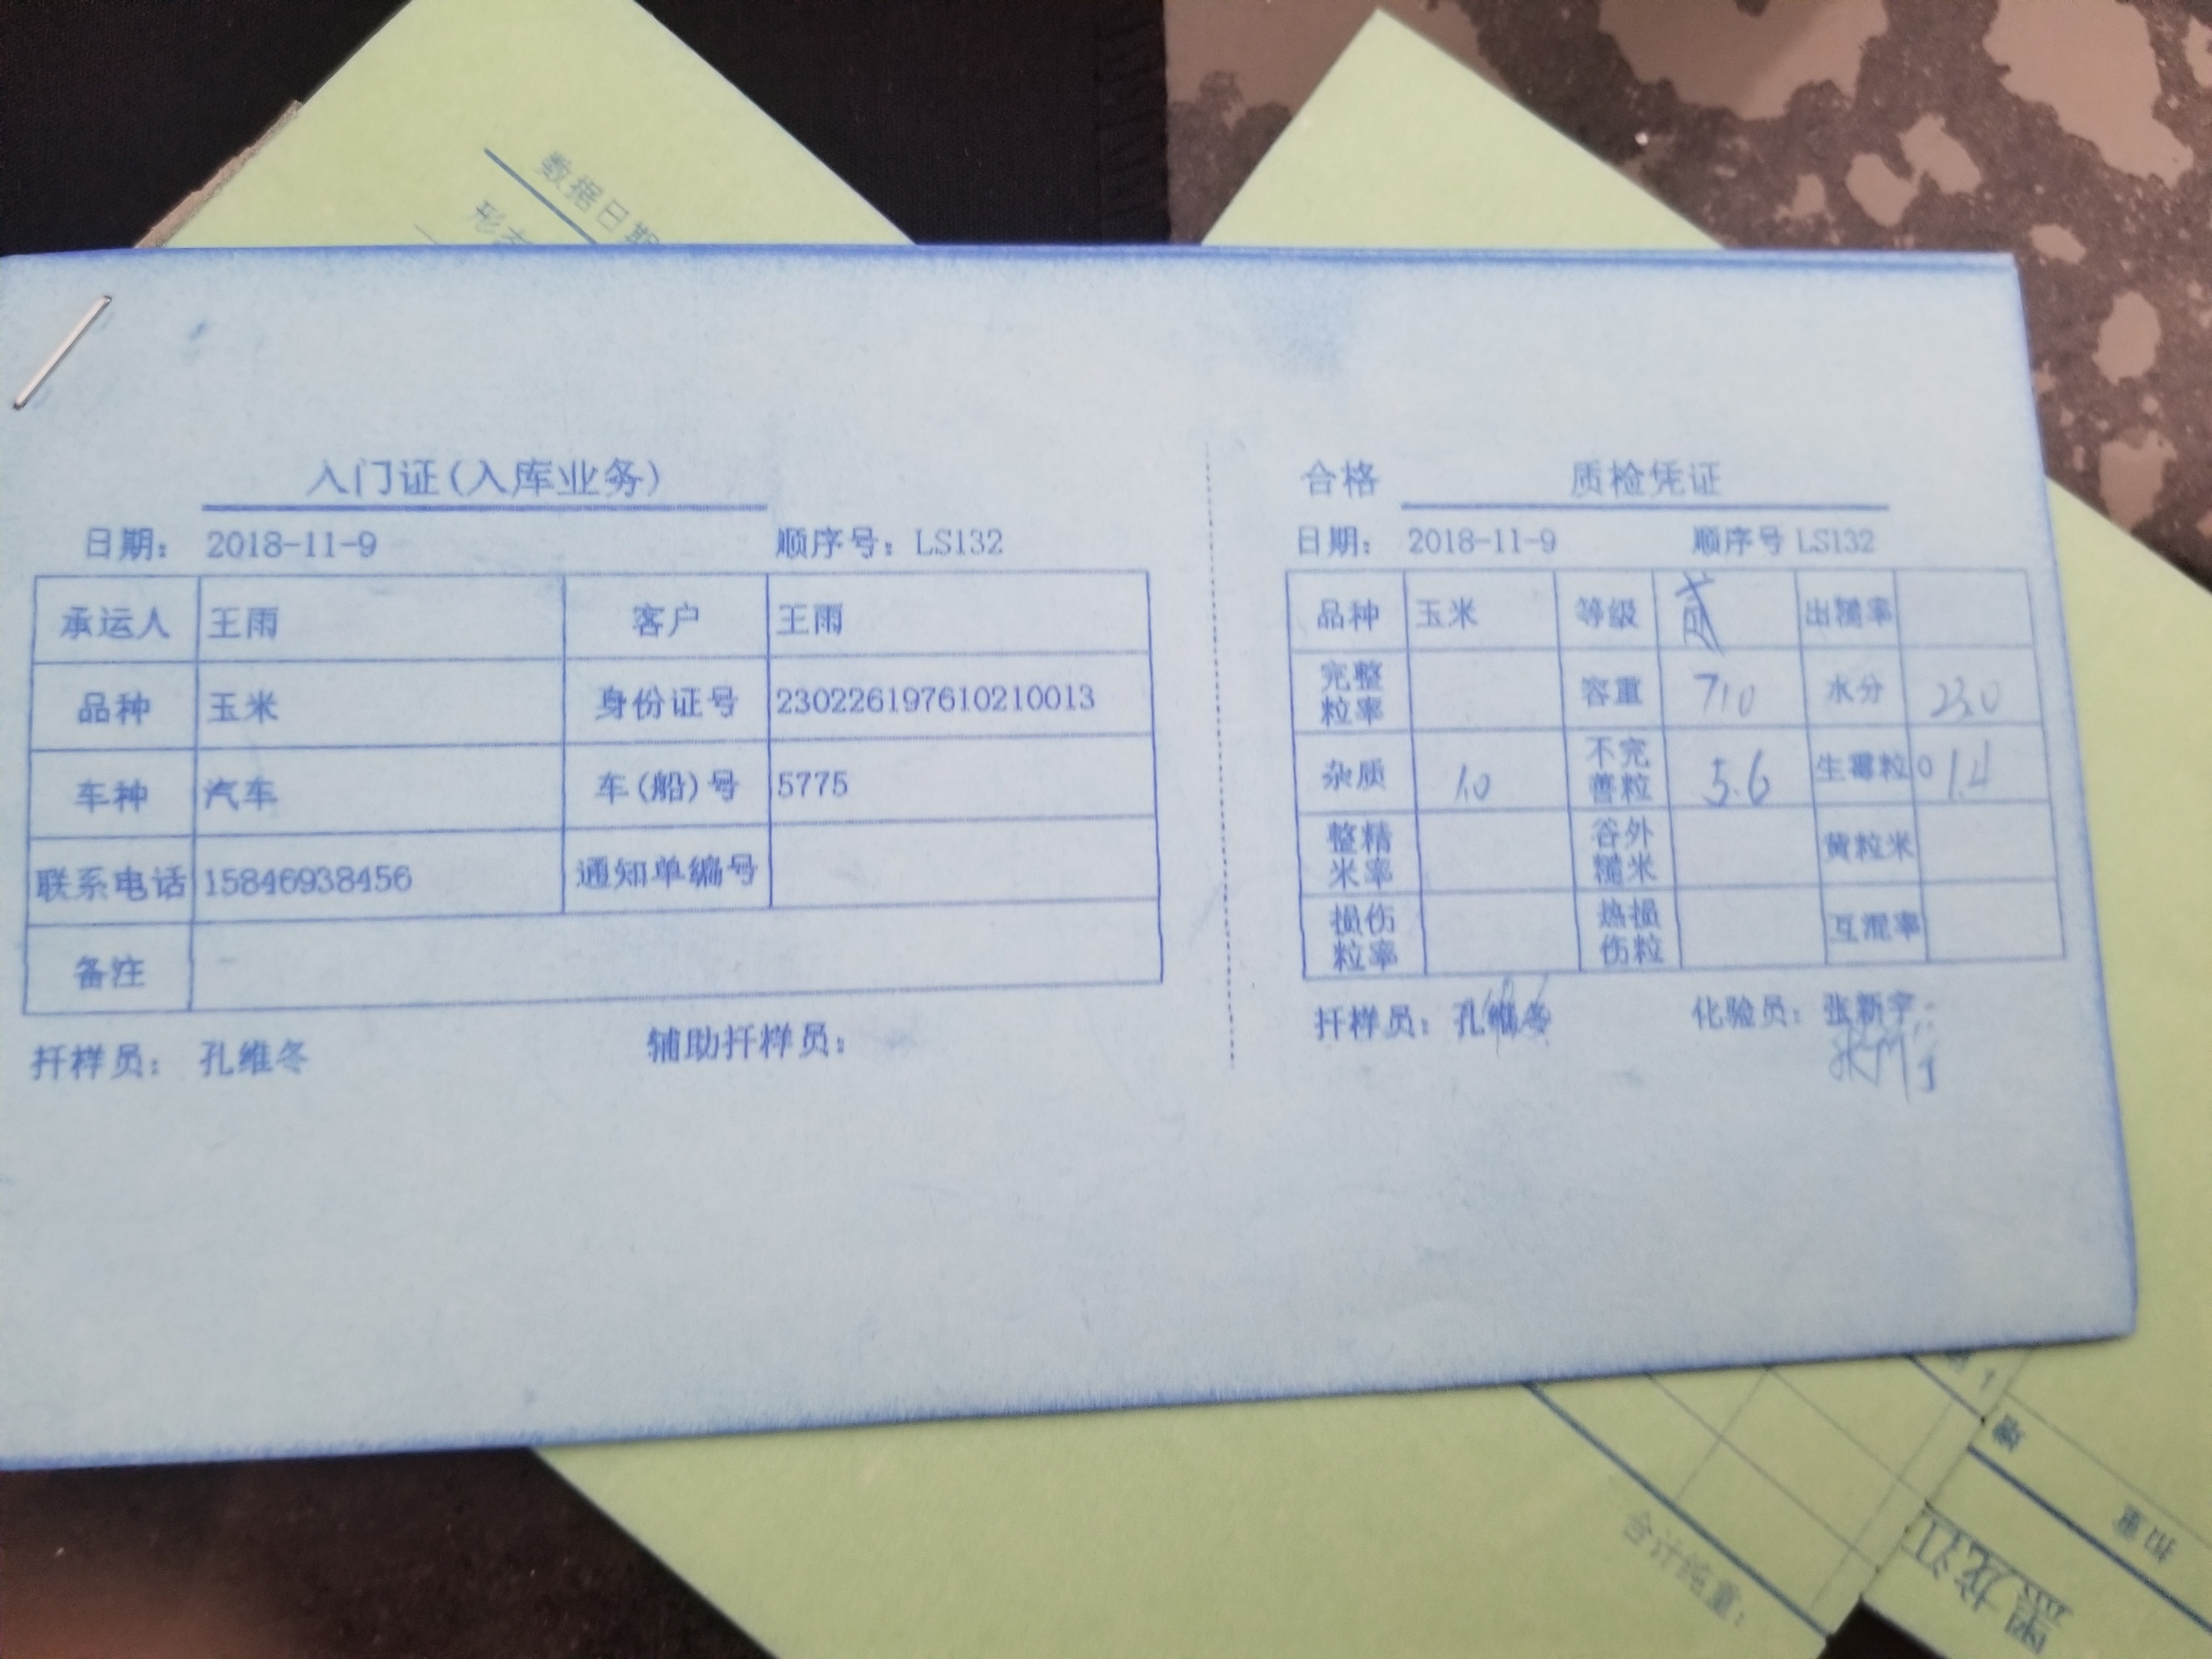 入门证(入库业务)
日期: 2018-11-9 顺序号: LS132
承运人 王雨 客户 王雨
品种 玉米 身份证号 230226197610210013
车种 汽车 车(船)号 5775
联系电话 15846938456 通知单编号
备注
扦样员: 孔维冬 辅助扦样员:
合格 质检凭证
日期: 2018-11-9 顺序号 LS132
品种 玉米 等级 贰 出糙率
完整粒率 容重 710 水分 23.0
杂质 1.0 不完善粒 5.6 生霉粒 0 1.4
整精米率 谷外糙米 黄粒米
损伤粒率 热损伤粒 互混率
扦样员: 孔维冬 化验员: 张新宇
合计